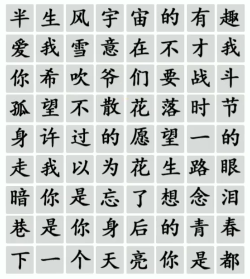 半生风宇宙的有趣
爱我雪意在不才我
你希吹爷们要战斗
孤望不散花落时节
身许过的愿望一的
走我以为花生路眼
暗你是忘了想念泪
巷是你身后的青春
下一个天亮你是都